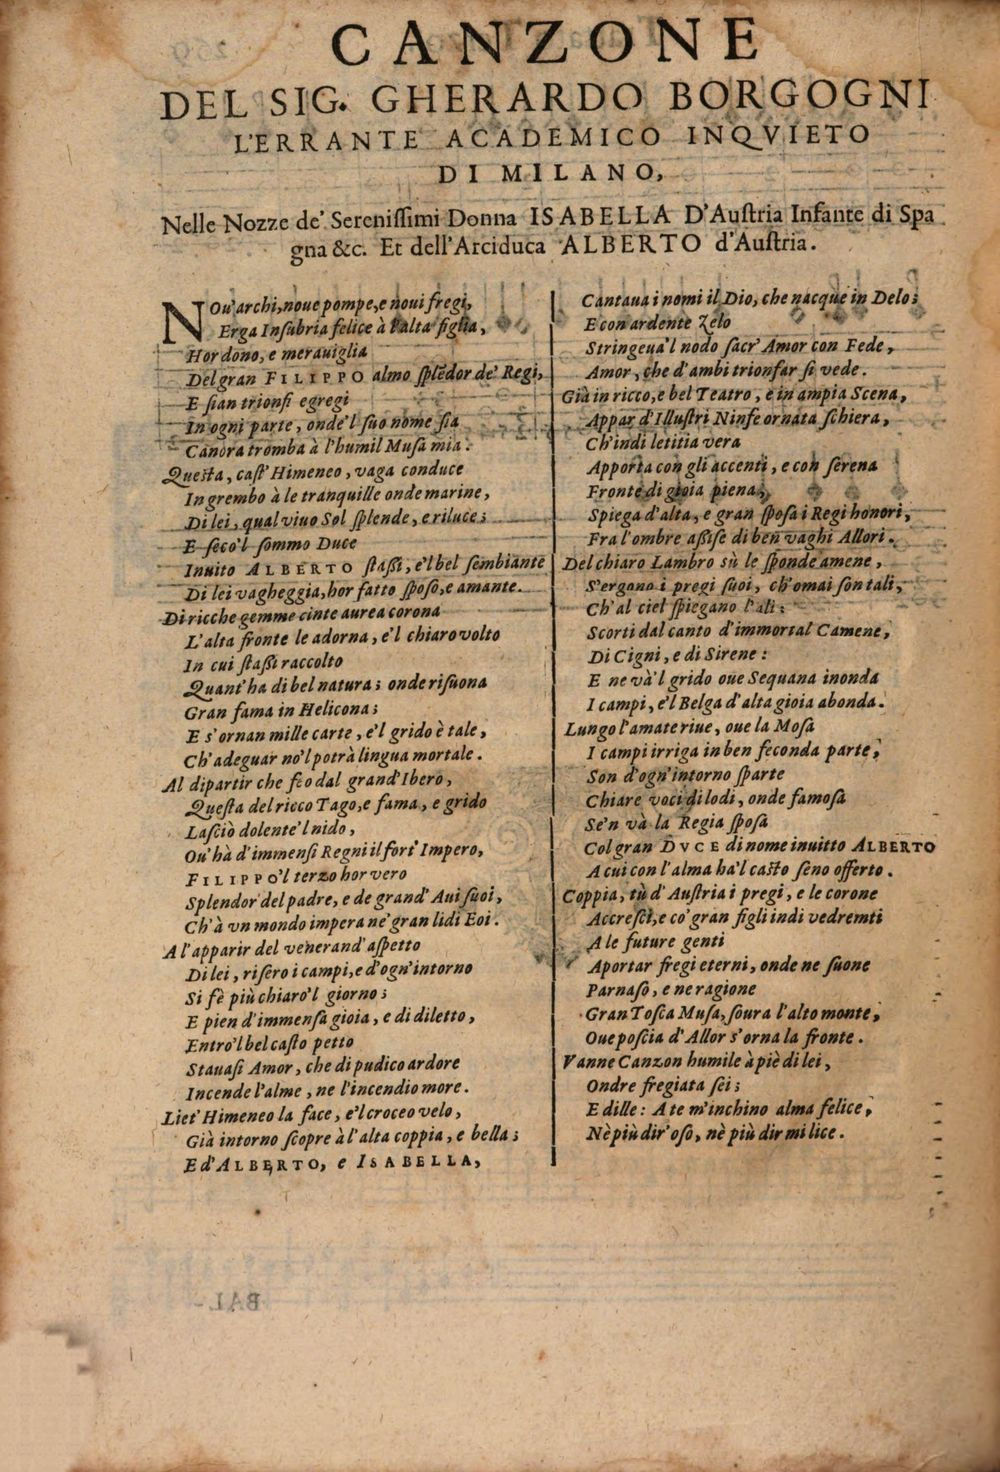 CANZONE
DEL SIG. GHERARDO BORGOGNI
L'ERRANTE ACADEMICO INQVIETO
DI MILANO,
Nelle Nozze de' Sereniſſimi Donna ISABELLA D'Auſtria Infante di Spa
gna &c. Et dell'Arciduca ALBERTO d'Auſtria.
NOu'archi, noue pompe, e noui fregi,
Erga Inſubria felice à l'alta figlia,
Hor dono, e merauiglia
Del gran FILIPPO almo ſplẽdor de' Regi,
E ſian trionfi egregi
In ogni parte, onde'l ſuo nome ſia
Canora tromba à l'humil Muſa mia.
Queſta, caſt' Himeneo, vaga conduce
In grembo à le tranquille onde marine,
Di lei, qual viuo Sol ſplende, e riluce;
E ſeco'l ſommo Duce
Inuito ALBERTO ſtaſſi, e'l bel ſembiante
Di lei vagheggia, hor fatto ſpoſo, e amante.
Di ricche gemme cinte aurea corona
L'alta fronte le adorna, e'l chiaro volto
In cui ſtaßi raccolto
Quant'ha di bel natura; onde riſuona
Gran fama in Helicona;
E s'ornan mille carte, e'l grido è tale,
Ch'adeguar no'l potrà lingua mortale.
Al dipartir che feo dal grand'Ibero,
Queſta del ricco Tago, e fama, e grido
Laſciò dolente'l nido,
Ou'hà d'immenſi Regni il fort' Impero,
FILIPPO'l terzo hor vero
Splendor del padre, e de grand' Aui ſuoi,
Ch'à vn mondo impera ne' gran lidi Eoi.
A l'apparir del venerand'aſpetto
Di lei, riſero i campi, e d'ogn'intorno
Si fè più chiaro'l giorno;
E pien d'immenſa gioia, e di diletto,
Entro'l bel caſto petto
Stauaſi Amor, che di pudico ardore
Incende l'alme, ne l'incendio more.
Liet' Himeneo la face, e'l croceo velo,
Già intorno ſcopre à l'alta coppia, e bella;
E d'ALBERTO, e ISABELLA,
Cantaua i nomi il Dio, che nacque in Delo;
E con ardente Zelo
Stringeua'l nodo ſacr' Amor con Fede,
Amor, che d'ambi trionfar ſi vede.
Già in ricco, e bel Teatro, e in ampia Scena,
Appar d'Illuſtri Ninfe ornata ſchiera,
Ch'indi letitia vera
Apporta con gli accenti, e con ſerena
Fronte di gioia piena,
Spiega d'alta, e gran ſpoſa i Regi honori,
Fra l'ombre aßiſe di ben vaghi Allori.
Del chiaro Lambro sù le ſponde amene,
S'ergono i pregi ſuoi, ch'omai ſon tali,
Ch'al ciel ſpiegano l'ali:
Scorti dal canto d'immortal Camene,
Di Cigni, e di Sirene:
E ne và'l grido oue Sequana inonda
I campi, e'l Belga d'alta gioia abonda.
Lungo l'amate riue, oue la Moſa
I campi irriga in ben feconda parte,
Son d'ogn'intorno ſparte
Chiare voci di lodi, onde famoſa
Se'n và la Regia ſpoſa
Col gran DVCE di nome inuitto ALBERTO
A cui con l'alma ha'l caſto ſeno offerto.
Coppia, tù d'Auſtria i pregi, e le corone
Accreſci, e co' gran figli indi vedremti
A le future genti
Aportar fregi eterni, onde ne ſuone
Parnaſo, e ne ragione
Gran Toſca Muſa, ſoura l'alto monte,
Oue poſcia d'Allor s'orna la fronte.
Vanne Canzon humile à piè di lei,
Ondre fregiata ſei;
E dille: A te m'inchino alma felice,
Nè più dir'oſo, nè più dir mi lice.